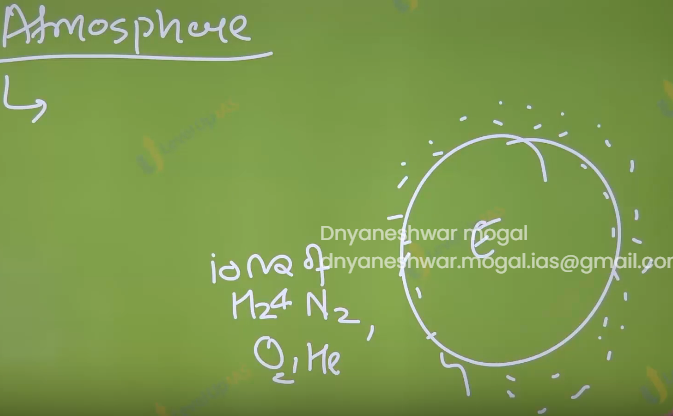 Atmosphere
E
Dnyaneshwar mogal
dnyaneshwar.mogal.ias@gmail.com
ions of
H2 & N2,
O2, He